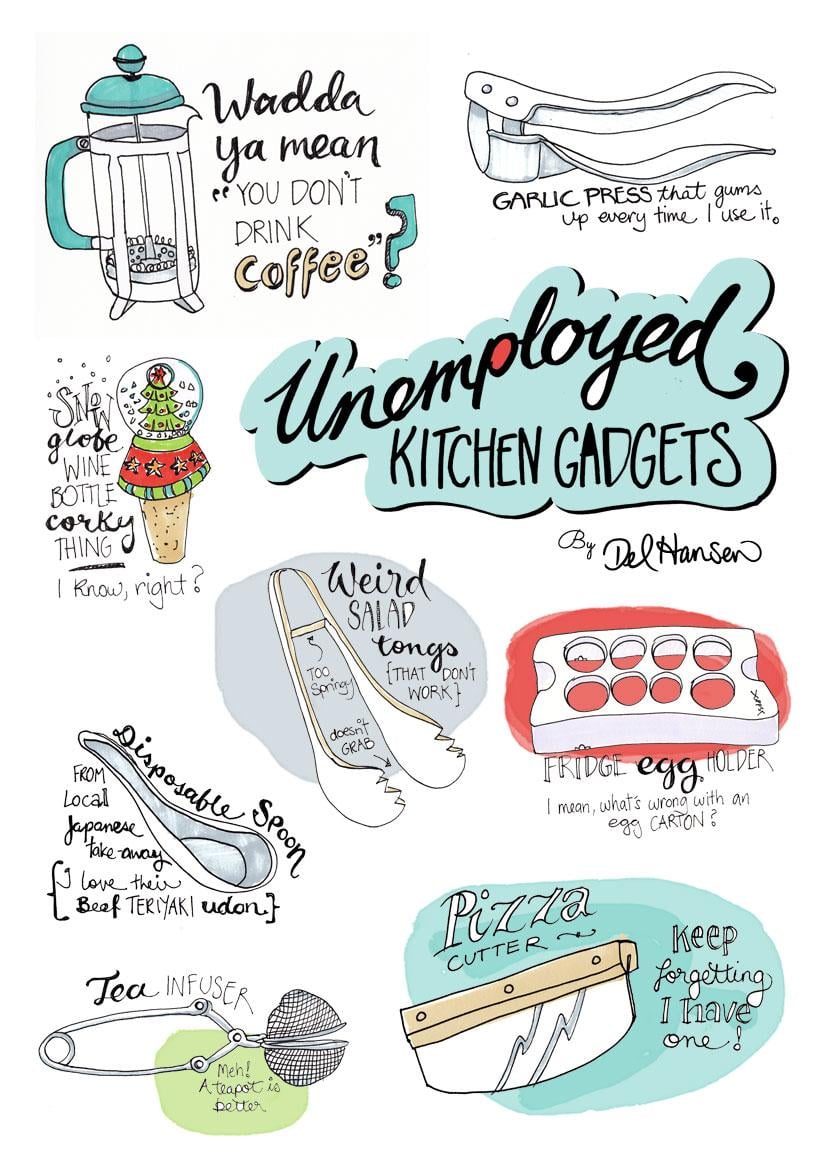 Wadda
ya mean
"YOU DON'T
DRINK
Coffee"?
GARLIC PRESS that gums
up every time I use it.
Unemployed
KITCHEN GADGETS
By Del Hansen
SNOW
globe
WINE
BOTTLE
corky
THING
I know, right?
Weird
SALAD
tongs
{THAT DON'T
WORK}
TOO
Springy
doesn't
GRAB
FRIDGE egg HOLDER
I mean, what's wrong with an
egg CARTON?
Disposable Spoon
FROM
Local
Japanese
take-away
{I love their
Beef TERIYAKI udon.}
Pizza
CUTTER
Keep
forgetting
I have
one!
Tea INFUSER
Meh!
A teapot is
better